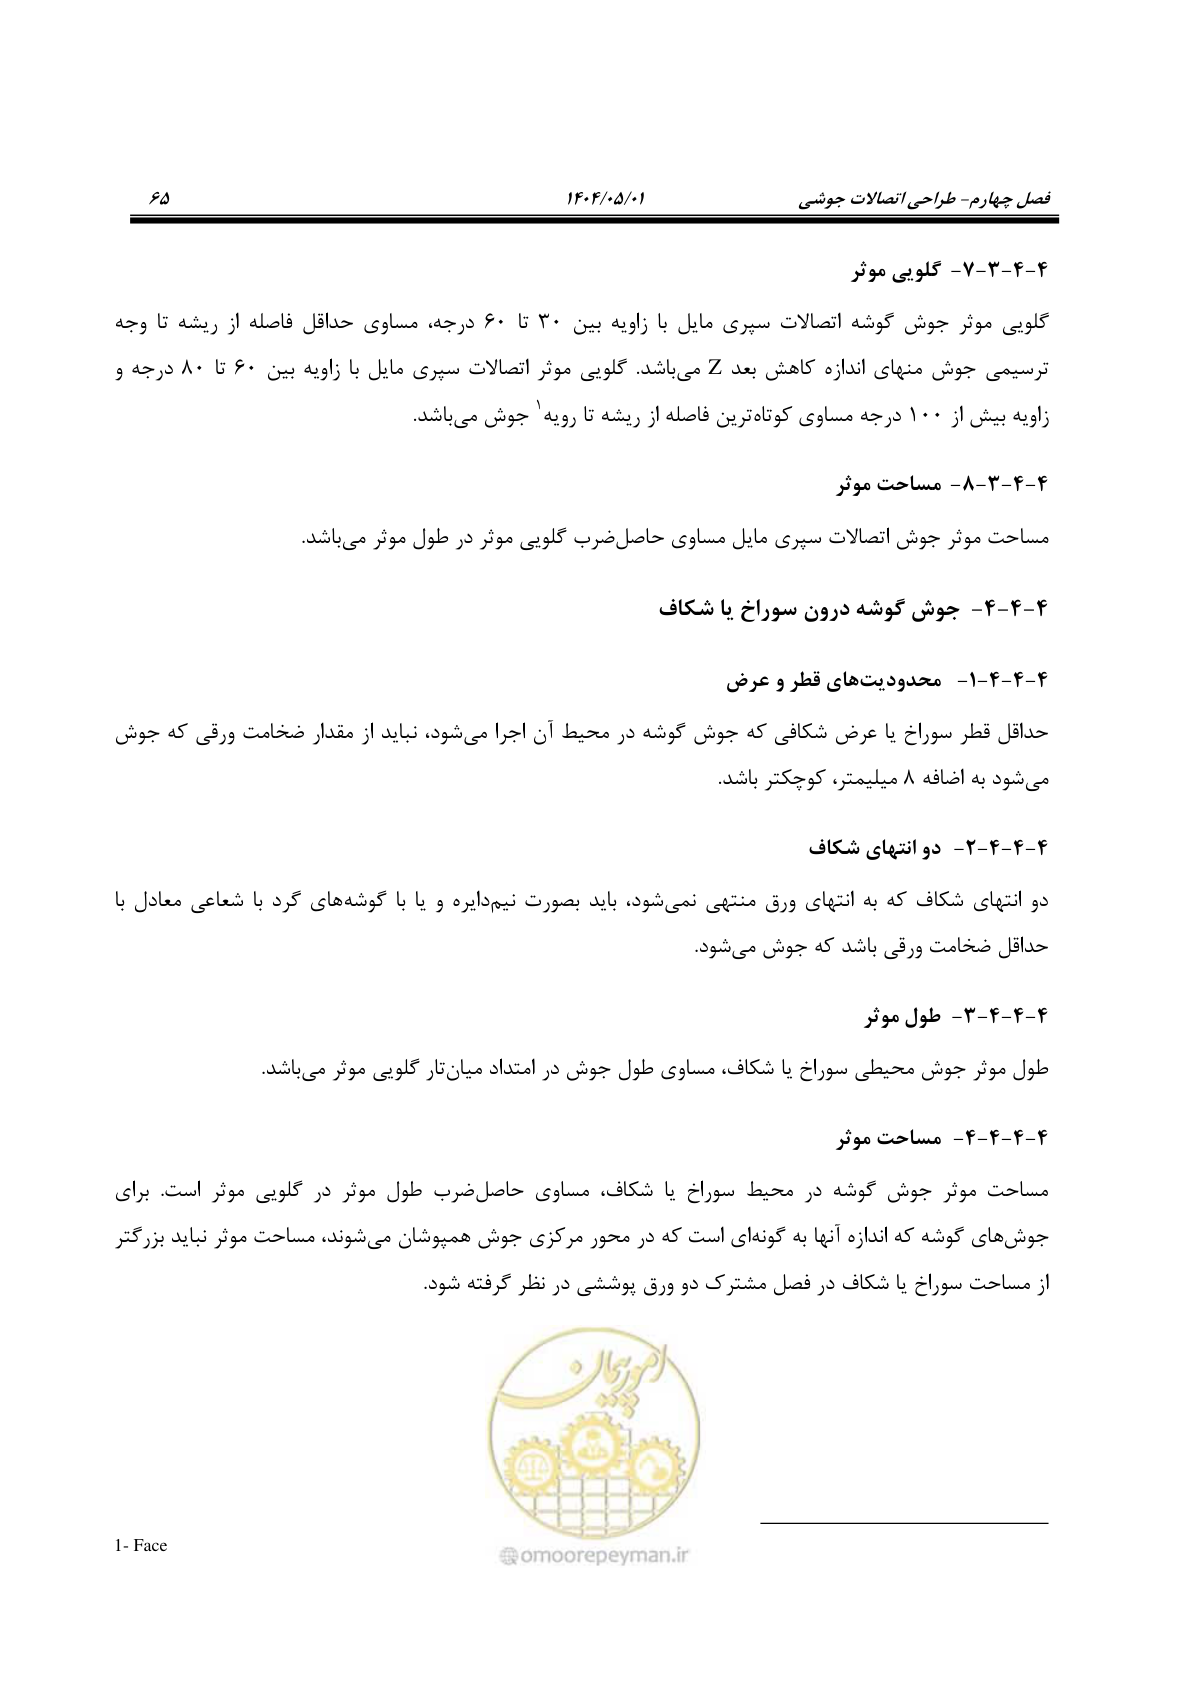 فصل چهارم- طراحی اتصالات جوشی ۱۴۰۴/۰۵/۰۱ ۶۵
۴-۴-۳-۷- گلویی موثر
گلویی موثر جوش گوشه اتصالات سپری مایل با زاویه بین ۳۰ تا ۶۰ درجه، مساوی حداقل فاصله از ریشه تا وجه
ترسیمی جوش منهای اندازه کاهش بعد Z می‌باشد. گلویی موثر اتصالات سپری مایل با زاویه بین ۶۰ تا ۸۰ درجه و
زاویه بیش از ۱۰۰ درجه مساوی کوتاه‌ترین فاصله از ریشه تا رویه۱ جوش می‌باشد.
۴-۴-۳-۸- مساحت موثر
مساحت موثر جوش اتصالات سپری مایل مساوی حاصل‌ضرب گلویی موثر در طول موثر می‌باشد.
۴-۴-۴- جوش گوشه درون سوراخ یا شکاف
۴-۴-۴-۱- محدودیت‌های قطر و عرض
حداقل قطر سوراخ یا عرض شکافی که جوش گوشه در محیط آن اجرا می‌شود، نباید از مقدار ضخامت ورقی که جوش
می‌شود به اضافه ۸ میلیمتر، کوچکتر باشد.
۴-۴-۴-۲- دو انتهای شکاف
دو انتهای شکاف که به انتهای ورق منتهی نمی‌شود، باید بصورت نیم‌دایره و یا با گوشه‌های گرد با شعاعی معادل با
حداقل ضخامت ورقی باشد که جوش می‌شود.
۴-۴-۴-۳- طول موثر
طول موثر جوش محیطی سوراخ یا شکاف، مساوی طول جوش در امتداد میان‌تار گلویی موثر می‌باشد.
۴-۴-۴-۴- مساحت موثر
مساحت موثر جوش گوشه در محیط سوراخ یا شکاف، مساوی حاصل‌ضرب طول موثر در گلویی موثر است. برای
جوش‌های گوشه که اندازه آنها به گونه‌ای است که در محور مرکزی جوش همپوشان می‌شوند، مساحت موثر نباید بزرگتر
از مساحت سوراخ یا شکاف در فصل مشترک دو ورق پوششی در نظر گرفته شود.
امور پیمان
1- Face
@omoorepeyman.ir